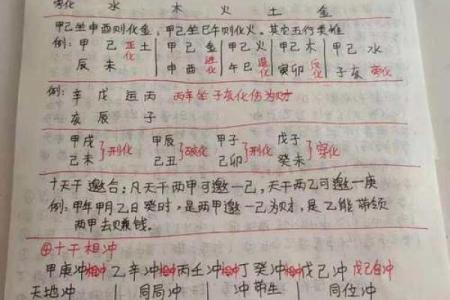 旁化 水 木 火 土 金
甲己坐申酉则化金,甲己坐巳午则化火。其它五行类推
例: 甲 己 正化 土 甲 己 金 甲 己 火 甲 己 木 甲 己 水
辰 未 申 酉 进化 午 巳 退化 寅 卯 反化 子 亥 旁化
例: 辛 戊 运 丙 丙辛坐子亥化伤为财
亥 辰 子
甲戌 己未 }刑化 甲辰 己丑 }破化 甲子 己卯 }刑化 戊子 癸未 }穿化
十天干邀合:凡天干两甲可邀一己,天干两乙可邀一庚
例:甲年甲月乙日癸时,是两甲邀一己为财,是乙能带领
两甲去赚钱。
④十干相冲
甲庚冲 乙辛冲 丙壬冲 丁癸冲 戊己冲 戊己自冲
天地冲 同局冲 冲帝生 同位冲